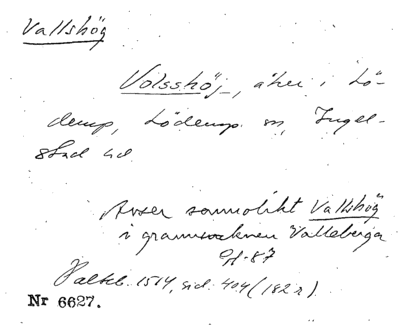 Vallshög
Volsshöj, åker i Lö-
derup, Löderup sn, Ingel-
stad hd.
Avser sannolikt Vallshög
i grannsocknen Valleberga
GH-87
Palteb. 1514, sid. 404 (182 r).
Nr 6627.